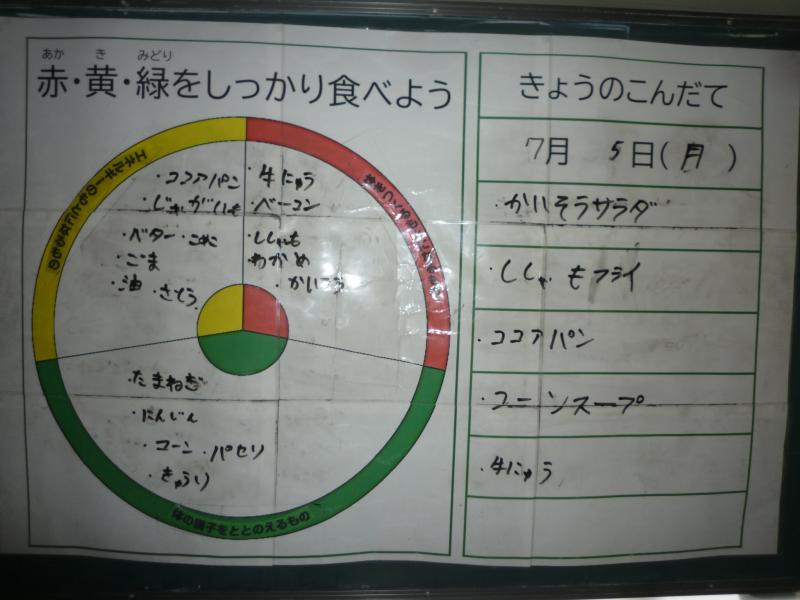 あか き みどり
赤・黄・緑をしっかり食べよう
エネルギーのもとになるもの
・ココアパン
・じゃがいも
・バター・こめこ
・ごま
・油・さとう
・牛にゅう
・ベーコン
・ししゃも
・わかめ
・かいそう
・たまねぎ
・にんじん
・コーン・パセリ
・きゅうり
体の調子をととのえるもの
きょうのこんだて
7月 5日(月)
・かいそうサラダ
・ししゃもフライ
・ココアパン
・コーンスープ
・牛にゅう